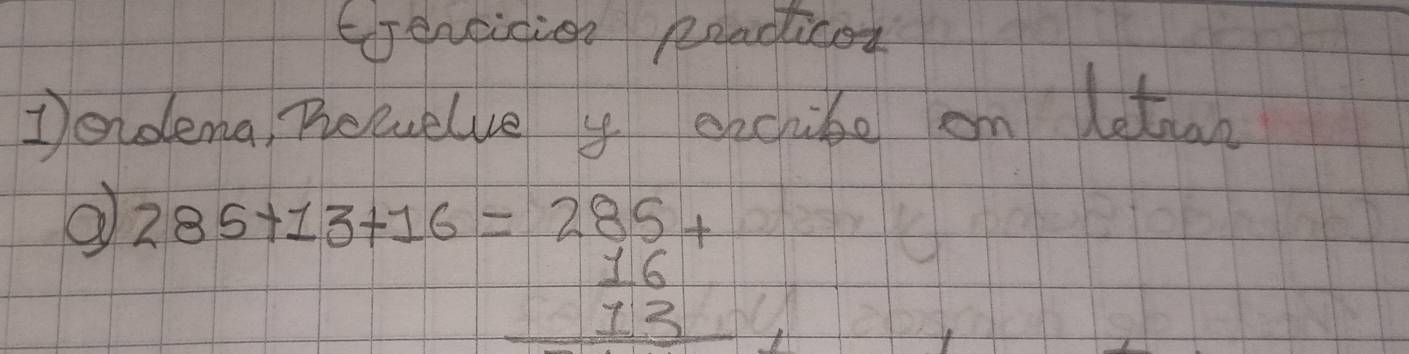 Ejercicios practicos
1) ordena, Resuelve y escribe en letras
a) 285+13+16 = 285 +
16
13